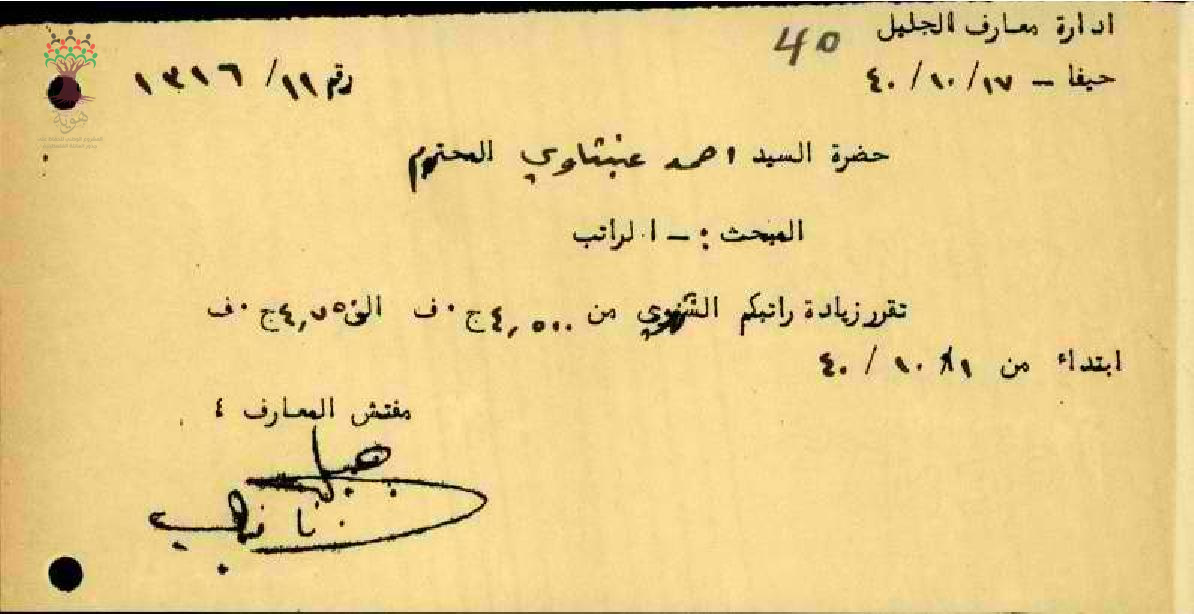 ادارة معارف الجليل
40
حيفا - ٤٠/١٠/١٧
رقم ١٣١٦/١١
هوية
حضرة السيد احمد عنبتاوي المحترم
المبحث :- الراتب
تقرر زيادة راتبكم الشهري من ٤,٥٠٠ ج٠ف الى ج٠ف
ابتداء من ٤٠/١٠/١
مفتش المعارف ٤